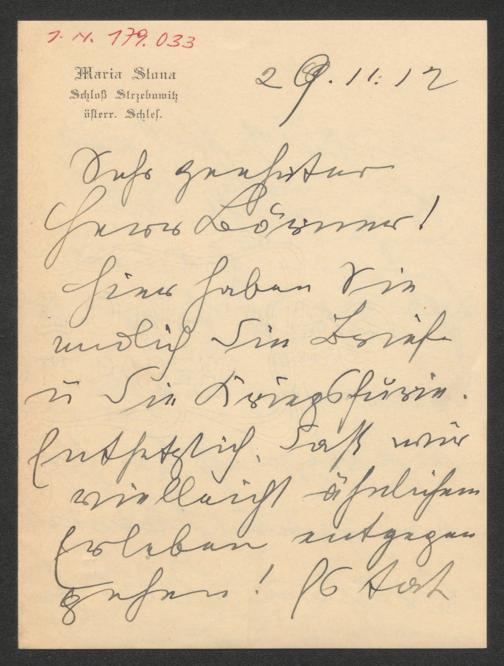 J. N. 179.033
Maria Stona
Schloß Strzebowitz
österr. Schles.
29.11.12
Sehr geehrter
Herr Börner!
Hier haben Sie
endlich die Briefe
u die Kriegsfurie.
Entsetzlich, daß wir
vielleicht ähnlichem
Erleben entgegen
gehen! Es hat